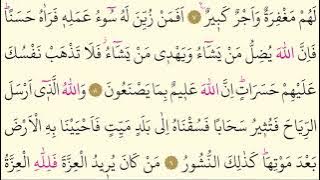 لَهُمْ مَغْفِرَةٌ وَاَجْرٌ كَب۪يرٌ۟ ﴿٧﴾ اَفَمَنْ زُيِّنَ لَهُ سُٓوءُ عَمَلِه۪ فَرَاٰهُ حَسَنًاۜ
فَاِنَّ اللّٰهَ يُضِلُّ مَنْ يَشَٓاءُ وَيَهْد۪ي مَنْ يَشَٓاءُۘ فَلَا تَذْهَبْ نَفْسُكَ
عَلَيْهِمْ حَسَرَاتٍۜ اِنَّ اللّٰهَ عَل۪يمٌ بِمَا يَصْنَعُونَ ﴿٨﴾ وَاللّٰهُ الَّذ۪ٓي اَرْسَلَ
الرِّيَاحَ فَتُث۪يرُ سَحَابًا فَسُقْنَاهُ اِلٰى بَلَدٍ مَيِّتٍ فَاَحْيَيْنَا بِهِ الْاَرْضَ
بَعْدَ مَوْتِهَاۜ كَذٰلِكَ النُّشُورُ ﴿٩﴾ مَنْ كَانَ يُر۪يدُ الْعِزَّةَ فَلِلّٰهِ الْعِزَّةُ